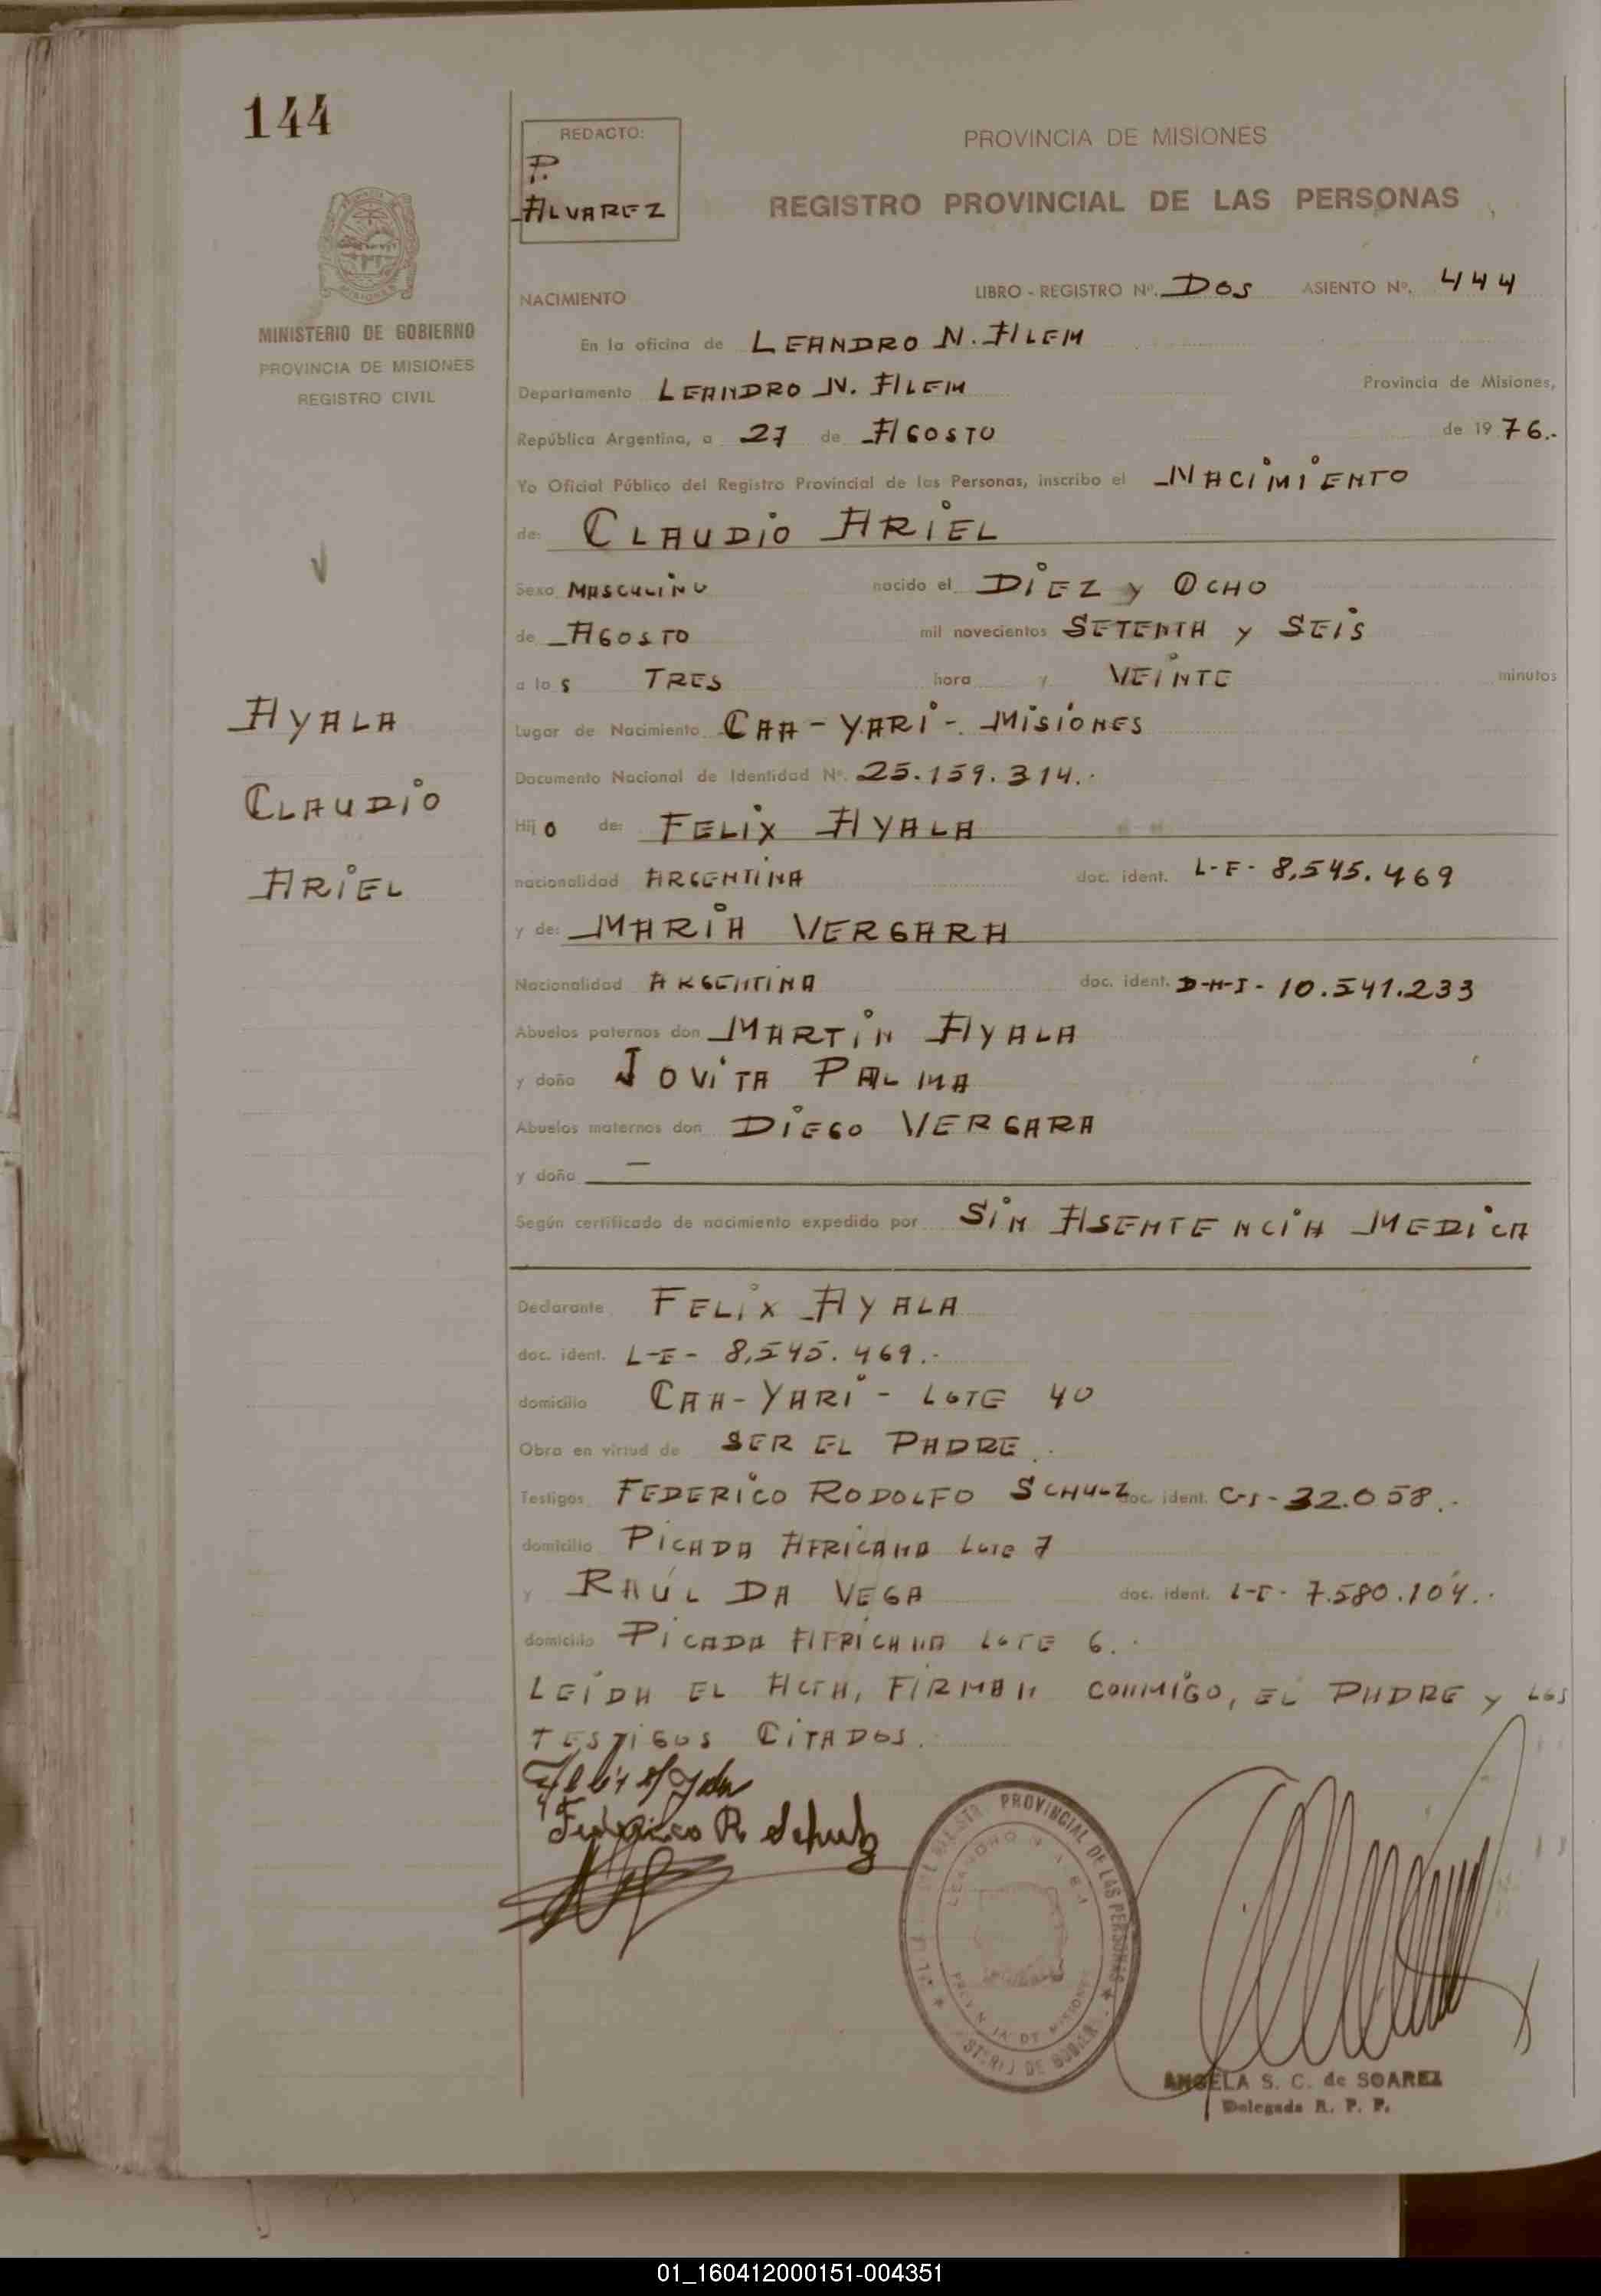 144
REDACTO:
P.
ALVAREZ
PROVINCIA DE MISIONES
REGISTRO PROVINCIAL DE LAS PERSONAS
MINISTERIO DE GOBIERNO
PROVINCIA DE MISIONES
REGISTRO CIVIL
NACIMIENTO LIBRO - REGISTRO Nº. DOS ASIENTO Nº. 444
En la oficina de LEANDRO N. ALEM
Departamento LEANDRO N. ALEM Provincia de Misiones,
República Argentina, a 27 de AGOSTO de 19 76.-
Yo Oficial Público del Registro Provincial de las Personas, inscribo el NACIMIENTO
de: CLAUDIO ARIEL
Sexo MASCULINO nacido el DIEZ y OCHO
de AGOSTO mil novecientos SETENTA y SEIS
a las TRES hora y VEINTE minutos
AYALA
CLAUDIO
ARIEL
Lugar de Nacimiento CAA-YARI-. MISIONES
Documento Nacional de Identidad Nº. 25.159.314.-
Hijo de: FELIX AYALA
nacionalidad ARGENTINA doc. ident. L-E- 8,545.469
y de: MARIA VERGARA
Nacionalidad ARGENTINA doc. ident. D-N-I- 10.541.233
Abuelos paternos don MARTIN AYALA
y doña JOVITA PALMA
Abuelos maternos don DIEGO VERGARA
y doña —
Según certificado de nacimiento expedido por SIN ASENTENCIA MEDICA
Declarante FELIX AYALA
doc. ident. L-E- 8,545.469.-
domicilio CAA-YARI - LOTE 40
Obra en virtud de SER EL PADRE.
Testigos FEDERICO RODOLFO SCHULZ doc. ident. C-I-32.058.-
domicilio PICADA AFRICANA LOTE 7
y RAÚL DA VEGA doc. ident. L-E- 7.580.104.-
domicilio PICADA AFRICANA LOTE 6.-
LEIDA EL ACTA, FIRMAN CONMIGO, EL PADRE y LOS
TESTIGOS CITADOS.
Federico R. Schulz
PROVINCIAL DE LAS PERSONAS
LEANDRO N. ALEM
ANGELA S. C. de SOAREZ
Delegada R. P. P.
01_160412000151-004351